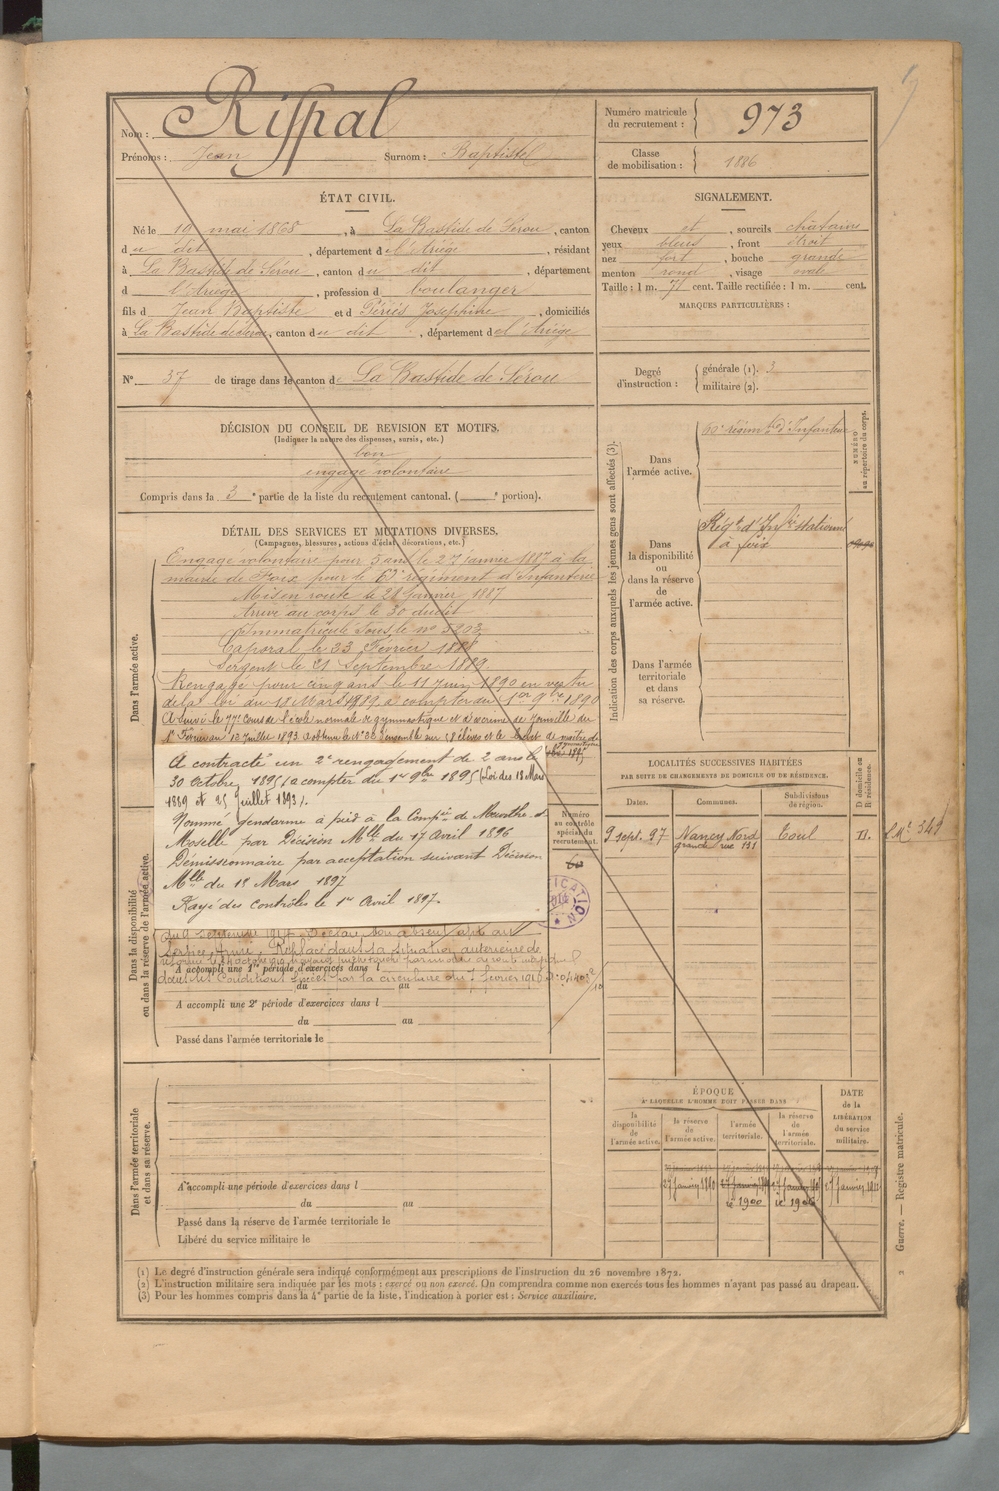 Nom : Rispal
Prénoms : Jean Surnom : Baptiste
Numéro matricule du recrutement : 973
Classe de mobilisation : 1886
ÉTAT CIVIL.
Né le 19 mai 1868, à La Bastide de Sérou, canton
du dit, département de l'Ariège, résidant
à La Bastide de Sérou, canton du dit, département
d l'Ariège, profession d boulanger
fils d Jean Baptiste et d Périès Joséphine, domiciliés
à La Bastide de Serou, canton du dit, département de l'Ariège
SIGNALEMENT.
Cheveux et, sourcils châtains
yeux bleus, front étroit
nez fort, bouche grande
menton rond, visage ovale
Taille : 1 m. 71 cent. Taille rectifiée : 1 m. cent.
MARQUES PARTICULIÈRES :
N° 37 de tirage dans le canton de La Bastide de Sérou
Degré d'instruction : générale (1). 3
militaire (2).
DÉCISION DU CONSEIL DE REVISION ET MOTIFS.
(Indiquer la nature des dispenses, sursis, etc.)
bon
engagé volontaire
Compris dans la 3e partie de la liste du recrutement cantonal. ( e portion).
DÉTAIL DES SERVICES ET MUTATIONS DIVERSES.
(Campagnes, blessures, actions d'éclat, décorations, etc.)
Dans l'armée active.
Engagé volontaire pour 5 ans le 27 janvier 1887 à la
mairie de Foix pour le régiment d'Infanterie
Mis en route le 28 Janvier 1887
Arrivé au corps le 30 dudit
Immatriculé sous le n° 5903
Caporal le 23 Février 1888
Sergent le 21 Septembre 1889
Rengagé pour cinq ans le 11 Juin 1890 en vertu
de la loi du 18 Mars 1889, à compter du 1er 9bre 1890
A suivi le cours de l'école normale de gymnastique et d'escrime de Joinville du
1er Février au 13 Juillet 1893
A contracté un 2e rengagement de 2 ans le
30 Octobre 1895 (à compter du 1er 9bre 1895 (Loi des 18 Mars
1889 et 25 Juillet 1893).
Nommé gendarme à pied à la Compie de Meurthe-et-
Moselle par Décision Mlle du 17 Avril 1896
Démissionnaire par acceptation suivant Décision
Mlle du 18 Mars 1897
Rayé des contrôles le 1er Avril 1897.
Numéro au contrôle spécial du recrutement.
Dans la disponibilité ou dans la réserve de l'armée active.
service armé. Replacé dans sa situation antérieure de
A accompli une 1re période d'exercices dans l
par la circulaire du 7 février 1916
du au
A accompli une 2e période d'exercices dans l
du au
Passé dans l'armée territoriale le
Dans l'armée territoriale et dans sa réserve.
A accompli une période d'exercices dans l
du au
Passé dans la réserve de l'armée territoriale le
Libéré du service militaire le
Indication des corps auxquels les jeunes gens sont affectés (3).
Dans l'armée active.
régimt d'Infanterie
NUMÉRO au répertoire du corps.
Dans la disponibilité ou dans la réserve de l'armée active.
Régt d'Infie stationné
à Foix
Dans l'armée territoriale et dans sa réserve.
LOCALITÉS SUCCESSIVES HABITÉES
PAR SUITE DE CHANGEMENTS DE DOMICILE OU DE RÉSIDENCE.
Dates. Communes. Subdivisions de région. D domicile ou R résidence.
9 sept. 97 Nancy Nord Toul D.
grande rue 131
ÉPOQUE
À LAQUELLE L'HOMME DOIT PASSER DANS
la disponibilité de l'armée active.
la réserve de l'armée active.
l'armée territoriale.
la réserve de l'armée territoriale.
DATE de la LIBÉRATION du service militaire.
le 1900
le 1906
(1) Le degré d'instruction générale sera indiqué conformément aux prescriptions de l'instruction du 26 novembre 1872.
(2) L'instruction militaire sera indiquée par les mots : exercé ou non exercé. On comprendra comme non exercés tous les hommes n'ayant pas passé au drapeau.
(3) Pour les hommes compris dans la 4e partie de la liste, l'indication à porter est : Service auxiliaire.
Guerre. — Registre matricule.
2